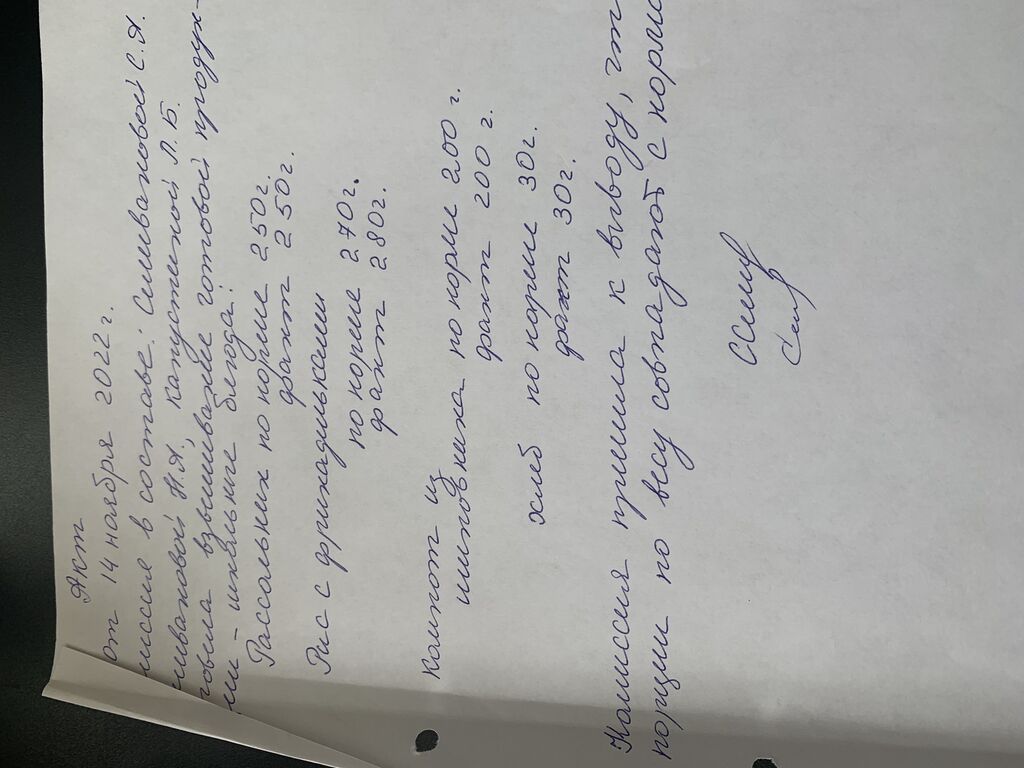 Акт
от 14 ноября 2022 г.
миссия в составе: Селивановой С.А.
ливановой Н.А, капустиной Л.Б.
овела взвешивание готовой продук-
ии - школьные блюда:
Рассольник по норме 250г.
факт 250г.
Рис с фрикадельками
по норме 270г.
факт 280г.
Компот из
шиповника по норме 200 г.
факт 200 г.
хлеб по норме 30г.
факт 30г.
Комиссия пришла к выводу, чт
порции по весу совпадают с нормо